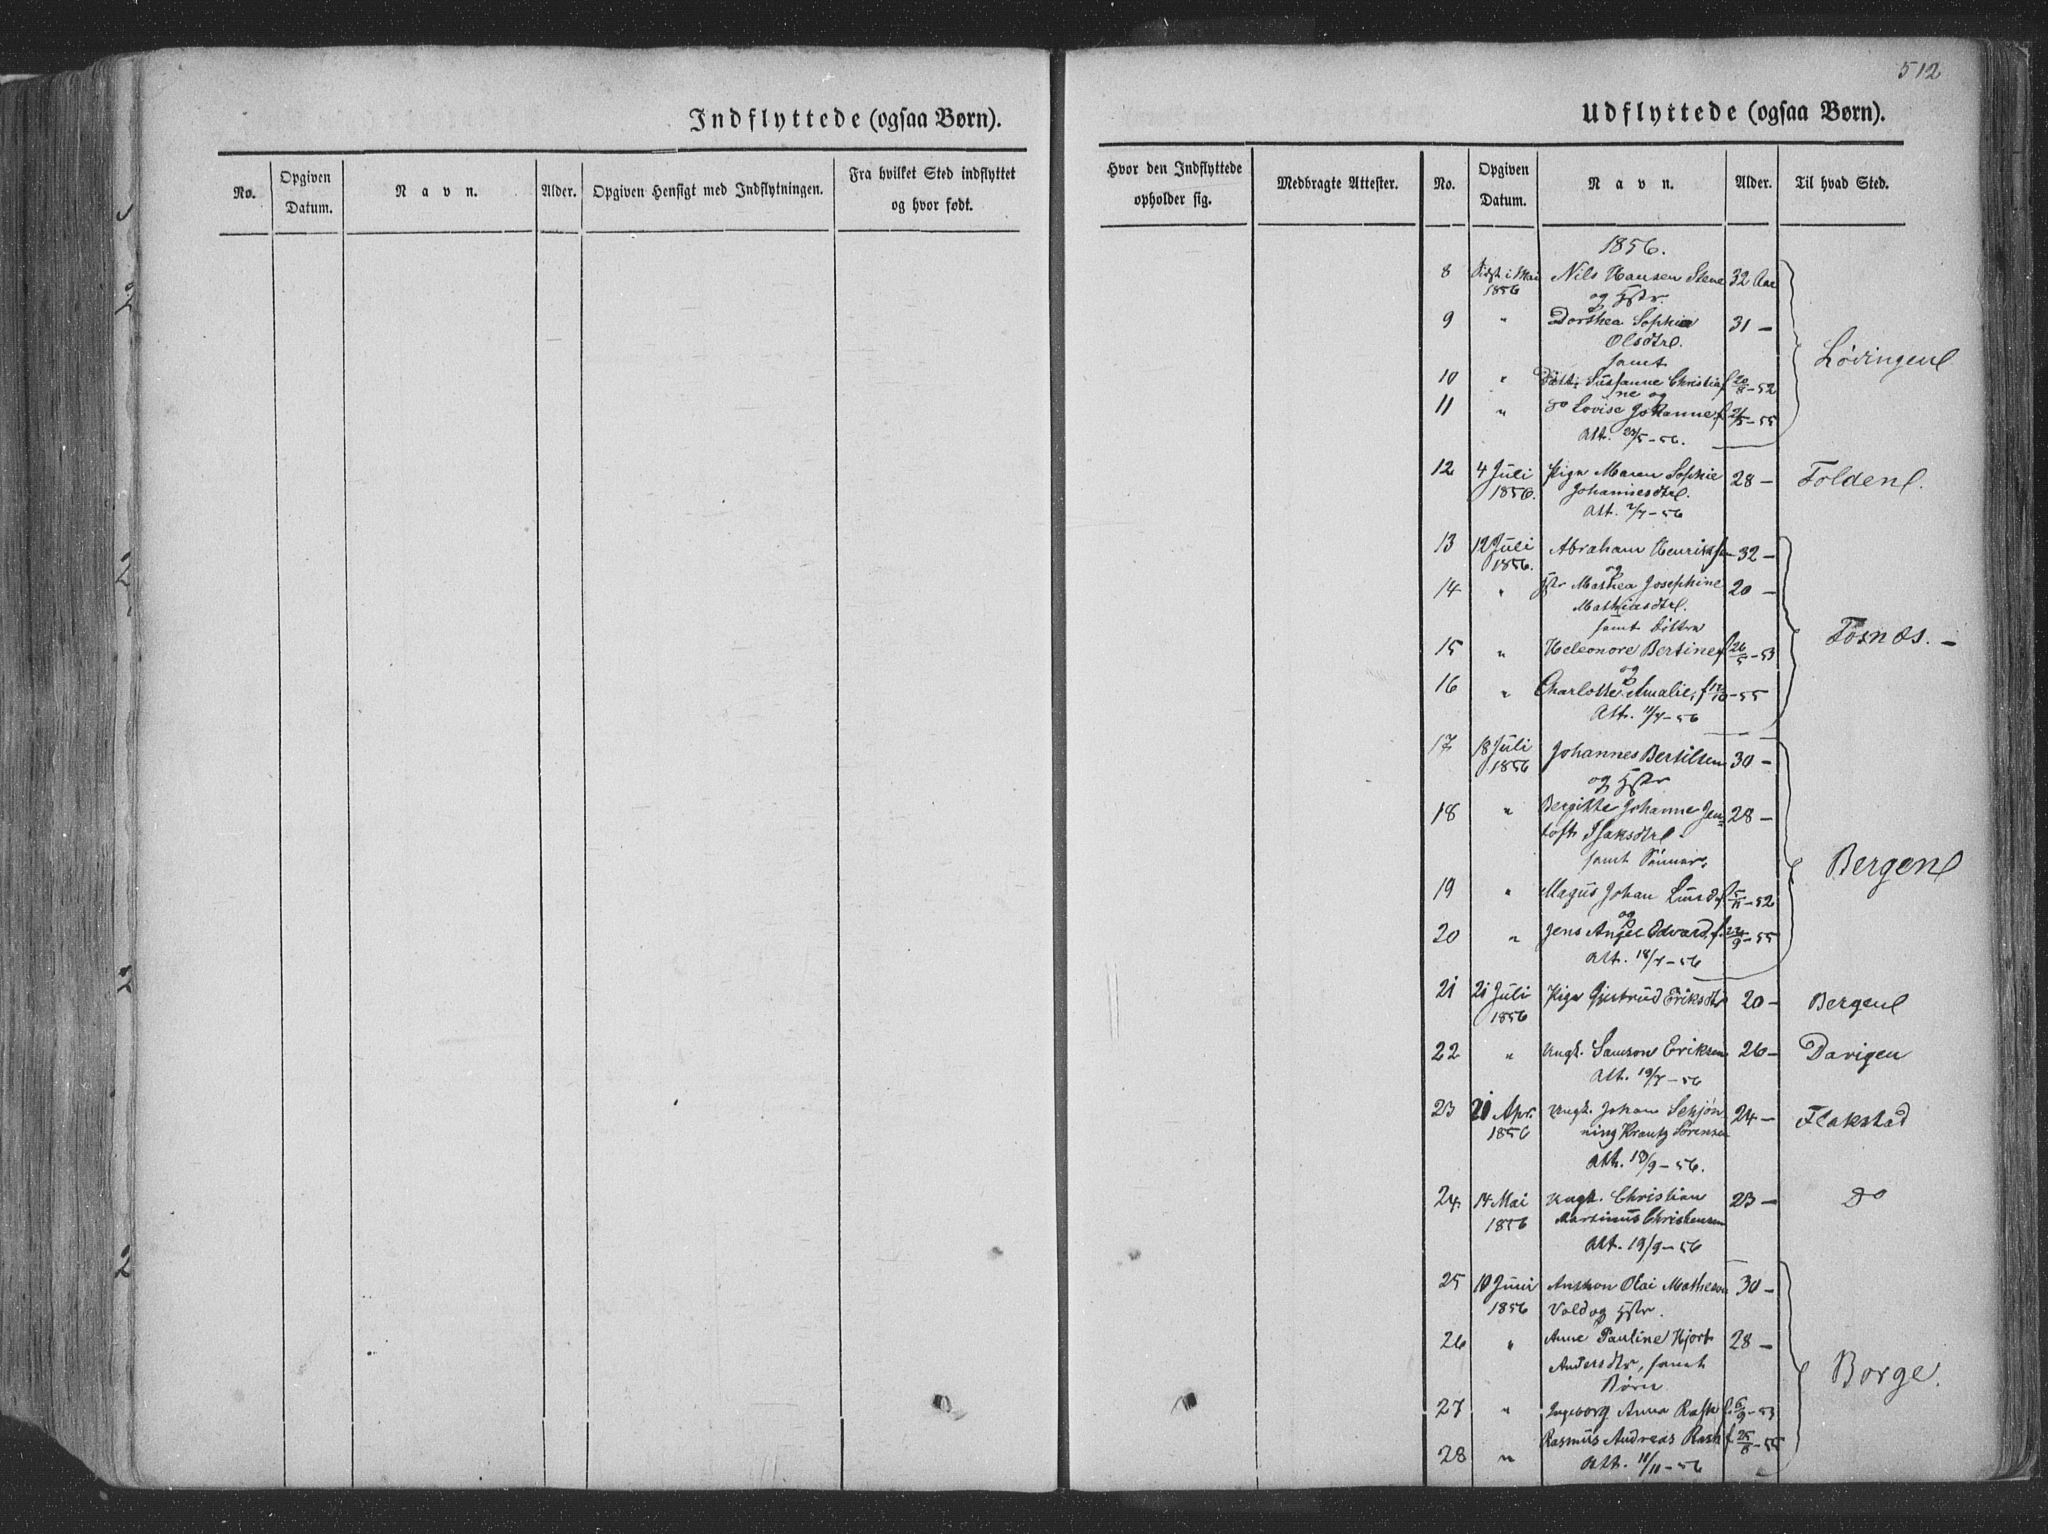 512
Indflyttede (ogsaa Børn).
No. Opgiven Datum. Navn. Alder. Opgiven Hensigt med Indflytningen. Fra hvilket Sted indflyttet og hvor født.
Udflyttede (ogsaa Børn).
Hvor den Indflyttede opholder sig. Medbragte Attester. No. Opgiven Datum. Navn. Alder. Til hvad Sted.
1856.
8 i Mai Nils Hansen Stene 32 Aar
1856 og Hstr.
9 " Dorthea Sophia 31 -
Olsdtr.
Lødingen
samt
10 " Dattr. Susanne Christia f 20/8-52
ne og
11 " do Lovise Johanne f 2/5-55
Att. 23/5-56.
12 4 Juli Pige Maren Sophie 28 - Folden
1856. Johannesdtr.
Att. 2/7-56
13 12 Juli Abraham Henriksen 32 -
1856. og
14 " Hstr Mathea Josephine 20 -
Mathiasdtr.
samt Døttre
Fosnæs. -
15 " Heleonore Bertine f 26/5-53
og
16 " Charlotte Amalie, f 12/10-55
Att. 11/7-56
17 18 Juli Johannes Bertilsen 30 -
1856 og Hstr
18 " Bergitte Johanne Jen- 28 -
toft Isaksdtr
samt Sønner,
Bergen
19 " Magus Johan Lund f 5/11-52
og
20 " Jens Angel Edvard, f. 24/9-55
Att. 18/7-56
21 21 Juli Pige Gjertrud Eriksdtr 20 - Bergen
1856
22 " Ungk. Samson Eriksen 26 - Davigen
Att. 19/7-56
23 21 Apr. Ungk. Johan Schjøn 24 - Flakstad
1856 ning Krantz Sørensen
Att. 18/9-56.
24. 14 Mai Ungk. Christian 23 - do
1856 Martinus Christensen
Att. 19/9-56
25 10 Juni Anthon Olai Mathesen 30 -
1856 Vold og Hstr.
26 " Anne Pauline Hjort 28 -
Andersdtr, samt
Børn
Borge.
27 " Ingeborg Anna Rask f. 6/9-53
28 " Rasmus Andreas Rask f 25/8-55
Att. 11/11-56